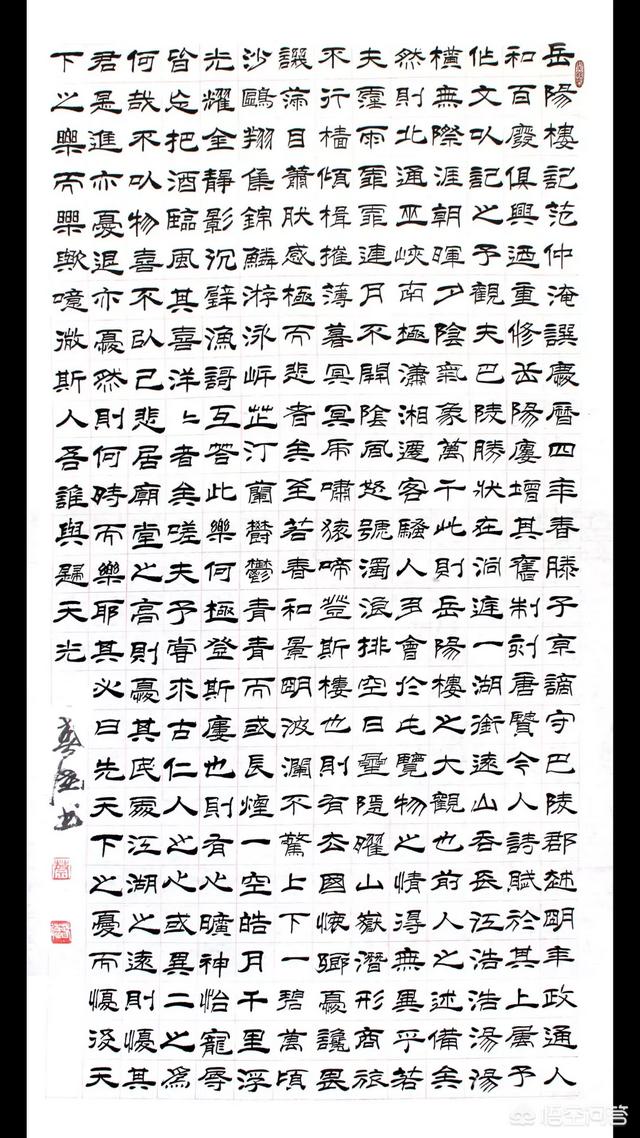 岳陽樓記范仲淹譔慶曆四年春滕子京謫守巴陵郡越明年政通人
和百廢俱興迺重修岳陽樓增其舊制刻唐賢今人詩賦於其上屬予
作文以記之予觀夫巴陵勝狀在洞庭一湖銜遠山吞長江浩浩湯湯
橫無際涯朝暉夕陰氣象萬千此則岳陽樓之大觀也前人之述備矣
然則北通巫峽南極瀟湘遷客騷人多會於此覽物之情得無異乎若
夫霪雨霏霏連月不開陰風怒號濁浪排空日星隱曜山嶽潛形商旅
不行檣傾楫摧薄暮冥冥虎嘯猿啼登斯樓也則有去國懷鄉憂讒畏
譏滿目蕭肰感極而悲者矣至若春和景明波瀾不驚上下一碧萬頃
沙鷗翔集錦鱗游泳岸芷汀蘭鬱鬱青青而或長煙一空皓月千里浮
光耀金靜影沉璧漁謌互答此樂何極登斯樓也則有心曠神怡寵辱
皆忘把酒臨風其喜洋〻者矣嗟夫予嘗求古仁人之心或異二之為
何哉不以物喜不以己悲居廟堂之高則憂其民處江湖之遠則憂其
君是進亦憂退亦憂然則何時而樂耶其必曰先天下之憂而憂後天
下之樂而樂歟噫微斯人吾誰與歸天光
書
悟空问答